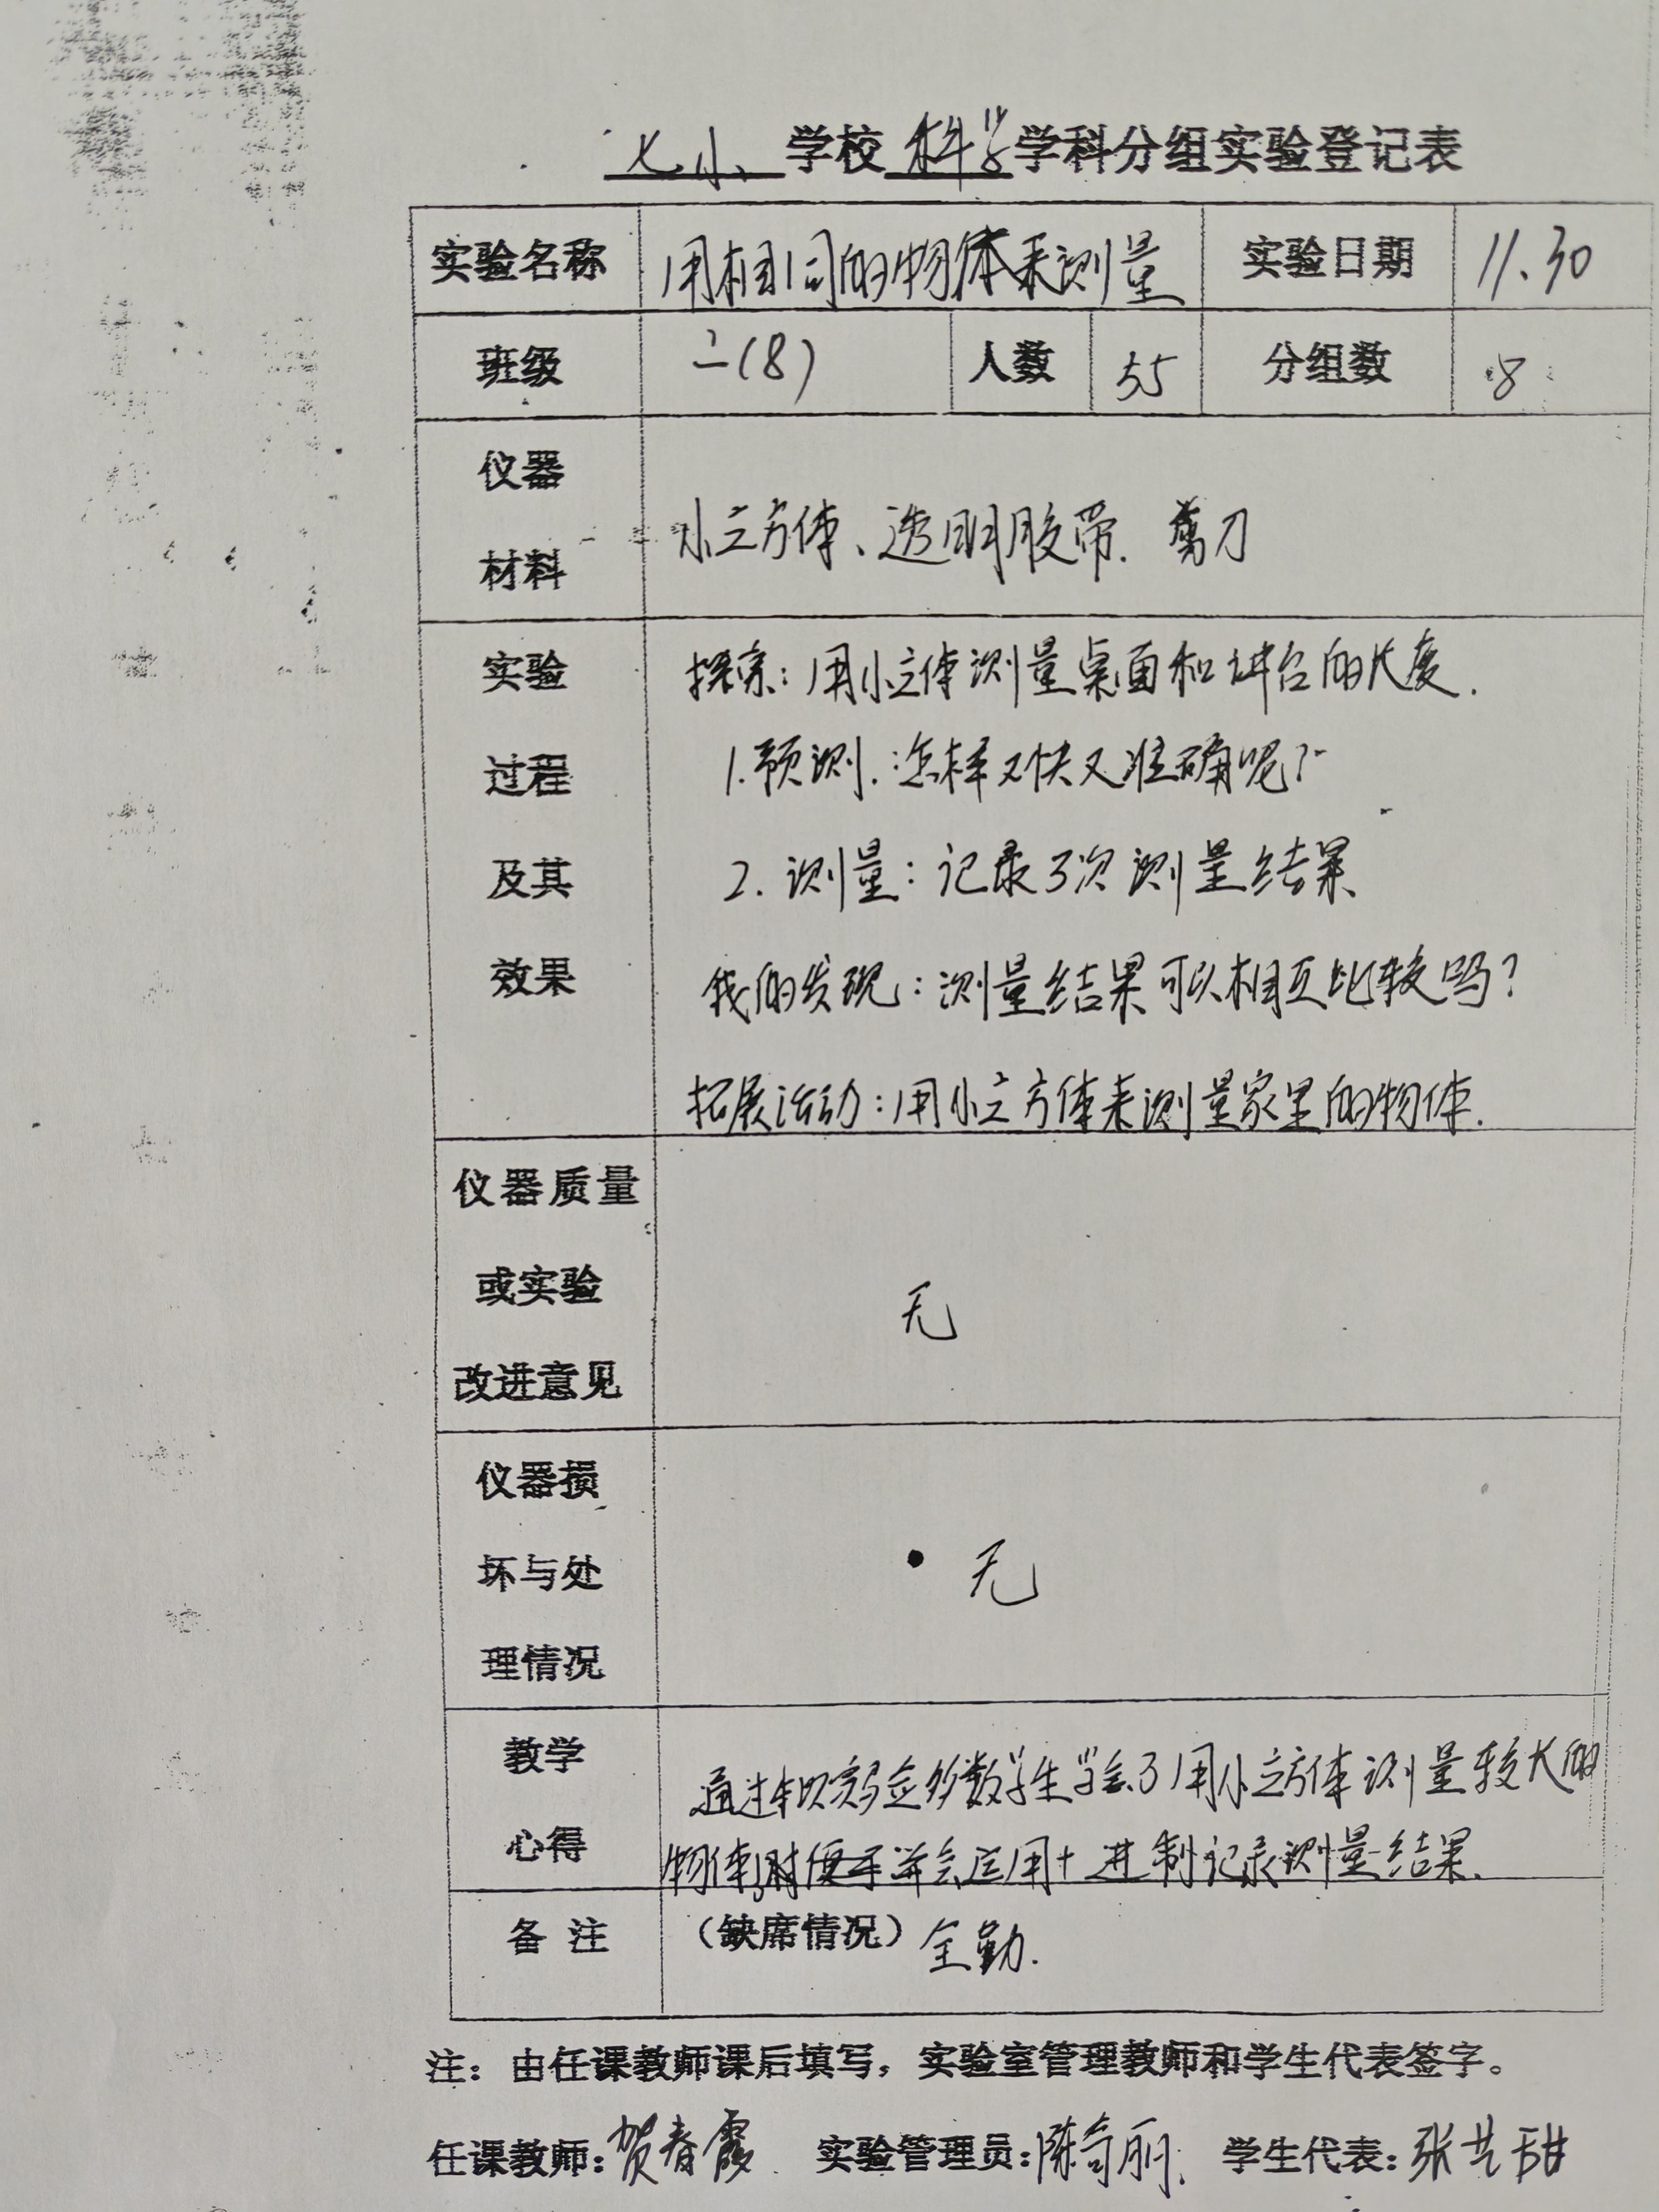 七小 学校 科学 学科分组实验登记表
实验名称 用相同的物体来测量 实验日期 11.30
班级 二(8) 人数 55 分组数 8
仪器
材料
小立方体、透明胶带. 剪刀
实验
过程
及其
效果
探索：用小立体测量桌面和讲台的长度.
1.预测.:怎样又快又准确呢?
2.测量：记录了次测量结果
我的发现：测量结果可以相互比较吗?
拓展活动：用小立方体来测量家里的物体.
仪器质量
或实验
改进意见
无
仪器损
坏与处
理情况
无
教学
心得
通过 实 多数学生学会了用小立方体测量较大的
物体, 并会运用十进制记录测量结果.
备注 （缺席情况）全勤.
注：由任课教师课后填写，实验室管理教师和学生代表签字。
任课教师：贺春霞 实验管理员：陈奇丽. 学生代表：张艺甜